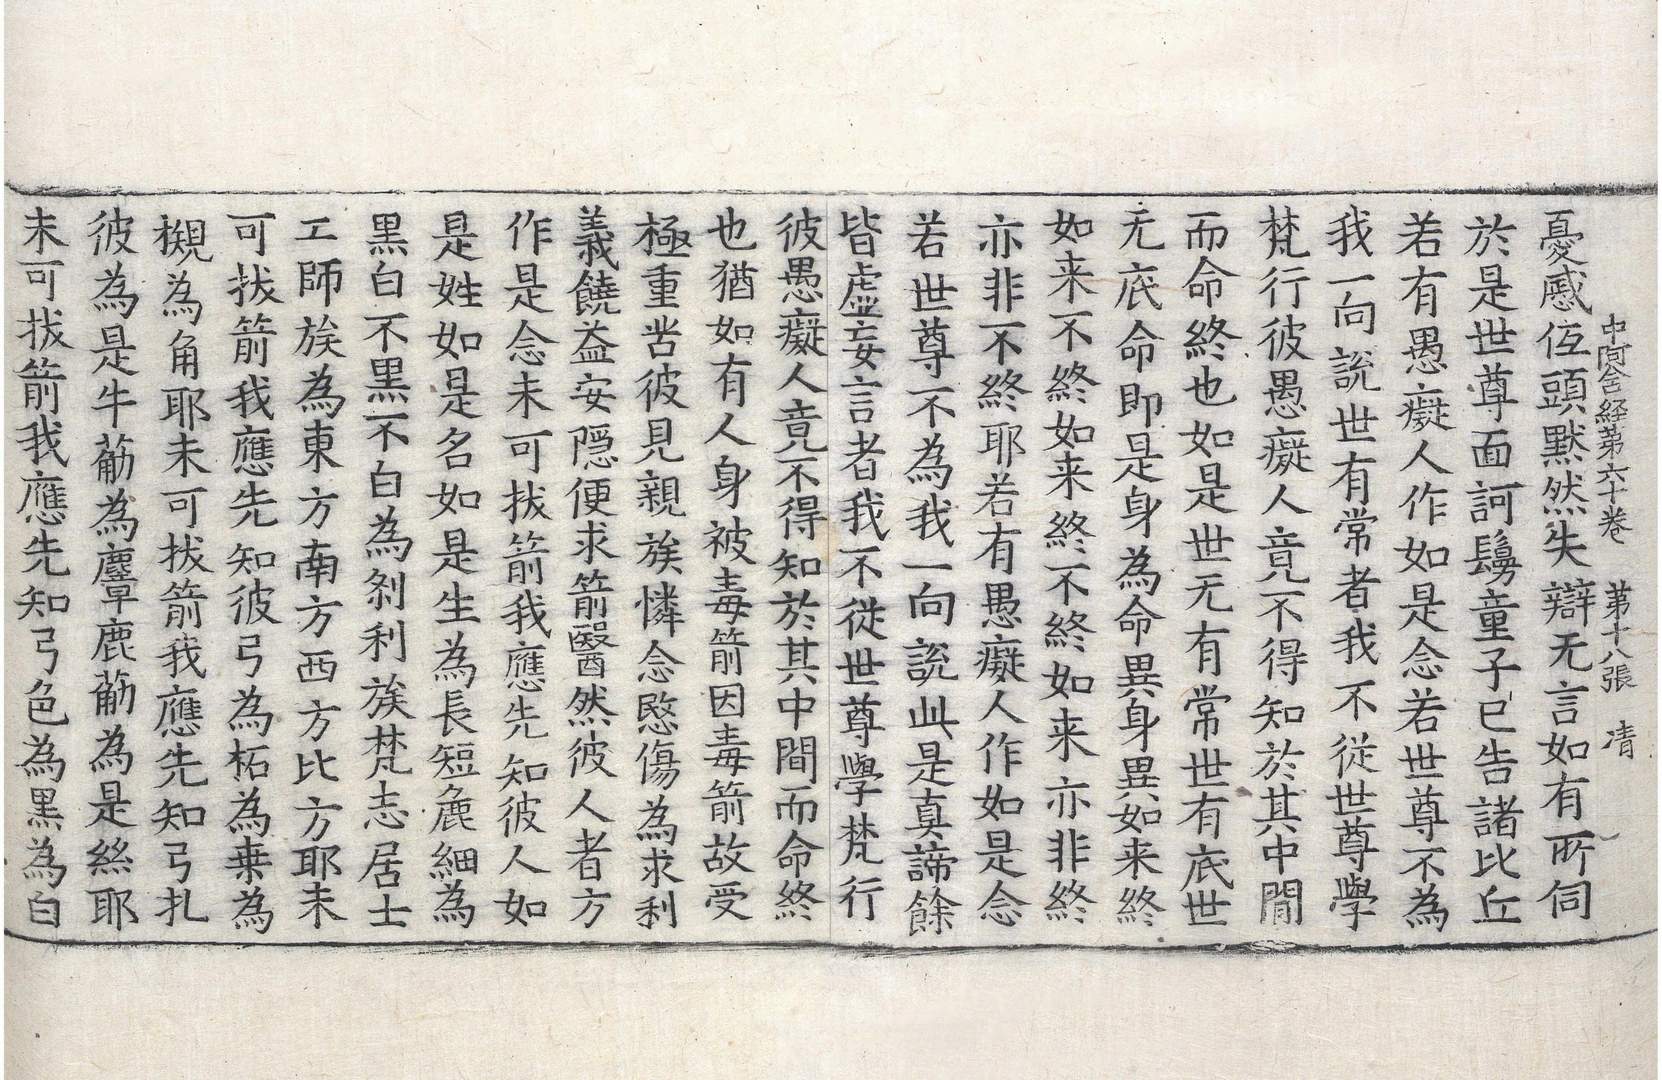 中阿含経第六十卷 第十八張 清
憂慼伍頭黙然失辯无言如有所伺
於是世尊面訶鬘童子已告諸比丘
若有愚癡人作如是念若世尊不為
我一向說世有常者我不従世尊學
梵行彼愚癡人竟不得知於其中間
而命終也如是世无有常世有底世
无底命即是身為命異身異如来終
如来不終如来終不終如来亦非終
亦非不終耶若有愚癡人作如是念
若世尊不為我一向說此是真諦餘
皆虛妄言者我不従世尊學梵行
彼愚癡人竟不得知於其中間而命終
也猶如有人身被毒箭因毒箭故受
極重苦彼見親族憐念愍傷為求利
義饒益安隠便求箭醫然彼人者方
作是念未可拔箭我應先知彼人如
是姓如是名如是生為長短麁細為
黒白不黒不白為剎利族梵志居士
工師族為東方南方西方比方耶未
可拔箭我應先知彼弓為柘為桒為
槻為角耶未可拔箭我應先知弓扎
彼為是牛葂為麞鹿葂為是絲耶
未可拔箭我應先知弓色為黒為白